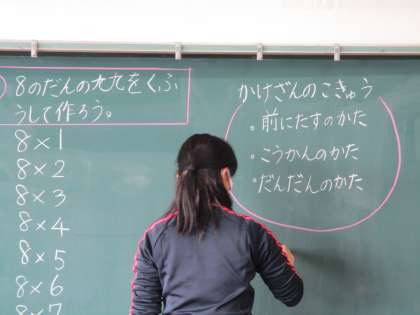 8のだんの九九をくふ
うして作ろう。
8×1
8×2
8×3
8×4
8×5
8×6
8×7
かけざんのこきゅう
・前にたすのかた
・こうかんのかた
・だんだんのかた